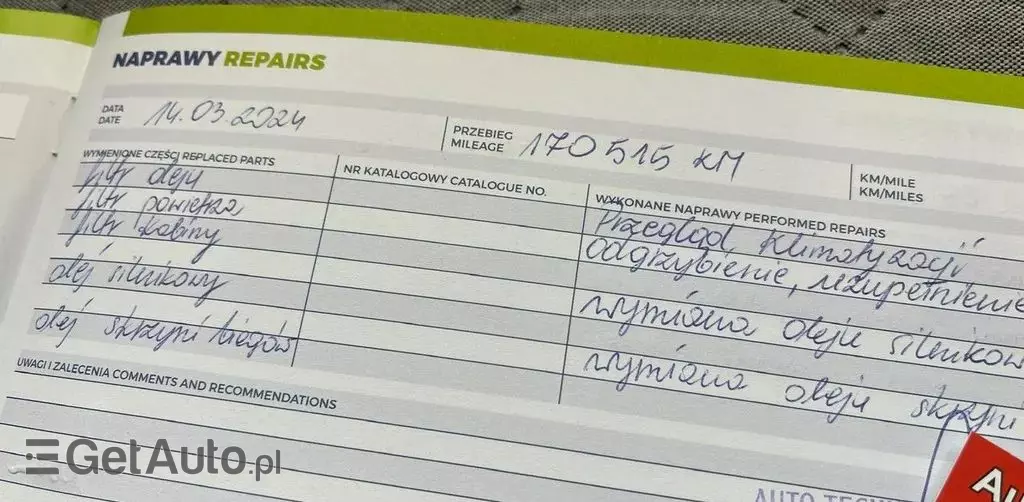 NAPRAWY REPAIRS
DATA
DATE
14.03.2024
PRZEBIEG
MILEAGE
170 515 KM
KM/MILE
KM/MILES
WYMIENIONE CZĘŚCI REPLACED PARTS
NR KATALOGOWY CATALOGUE NO.
WYKONANE NAPRAWY PERFORMED REPAIRS
filtr oleju
filtr powietrza
filtr kabiny
olej silnikowy
olej skrzyni biegów
Przegląd klimatyzacji
odgrzybienie, uzupełnienie
wymiana oleju silnikow
wymiana oleju skrzyni
UWAGI I ZALECENIA COMMENTS AND RECOMMENDATIONS
GetAuto.pl